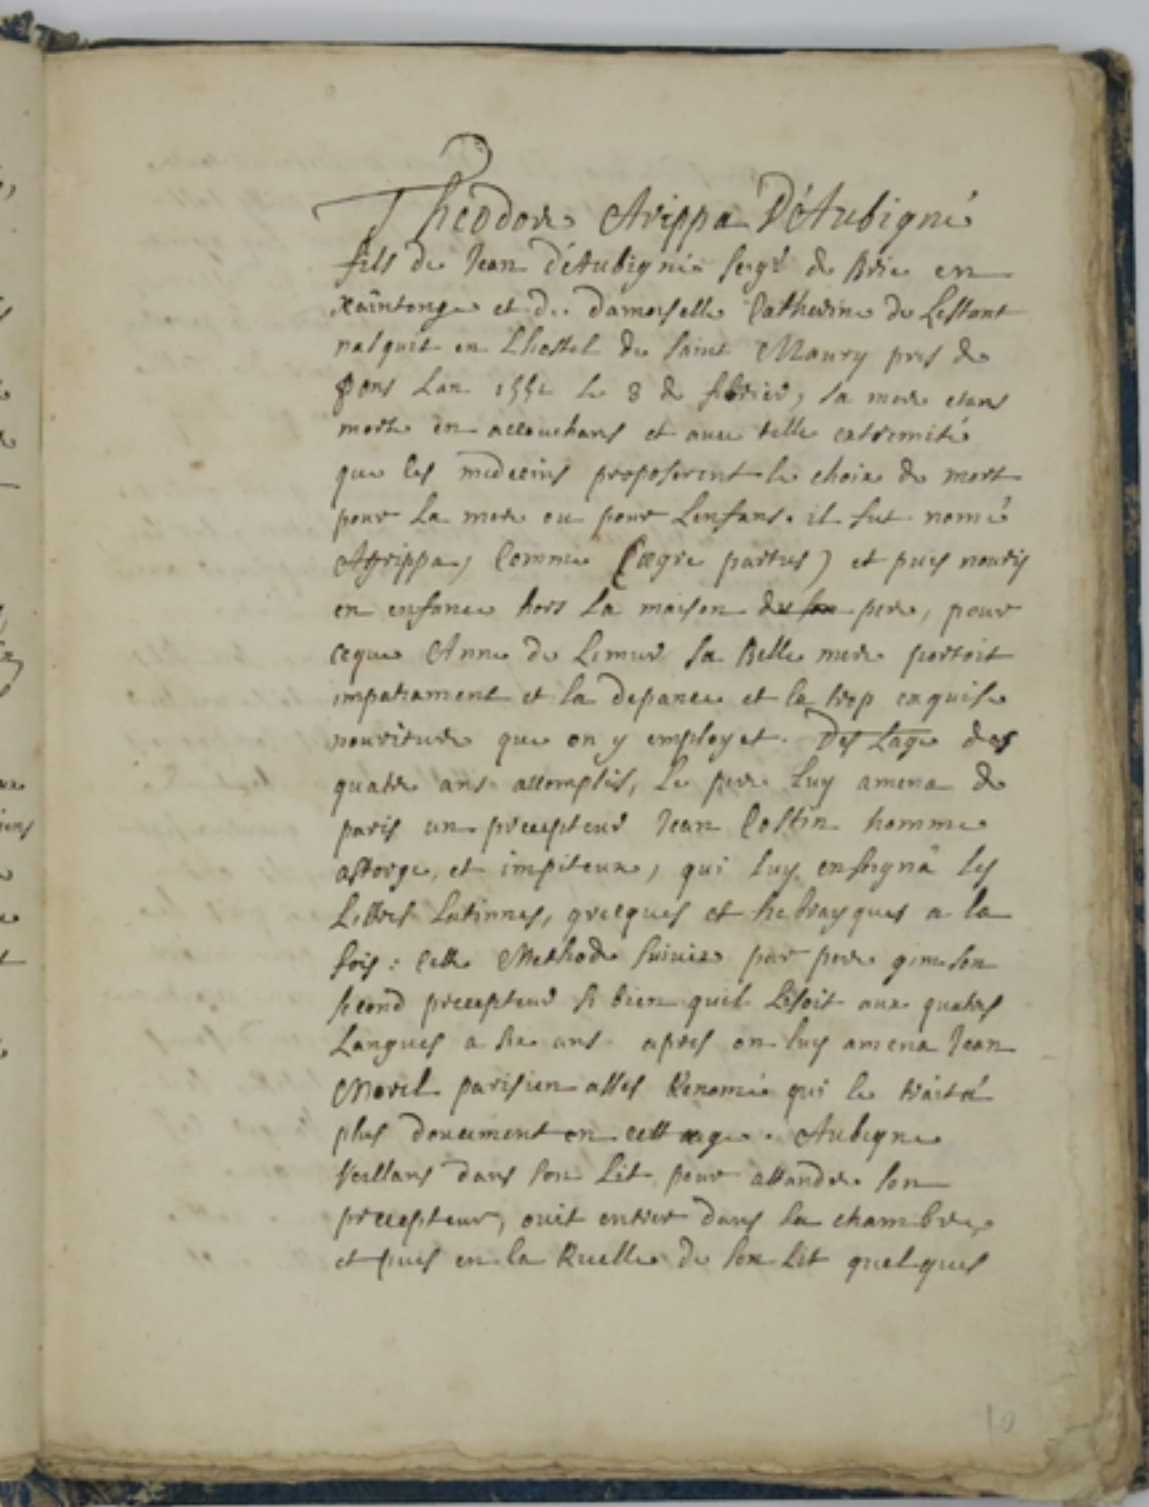 Theodore Agrippa D'Aubigné
fils de Jean d'Aubignée seigr de Brie en
xaintonge et de damoiselle Catherine de Lestant
nasquit en Lhostel de saint Maury pres de
Pons Lan 1552 le 8 de febrier, sa mere etant
morte en accouchans et avec telle extremité
que les medecins proposerent le choix de mort
pour la mere ou pour Lenfans. il fut nomé
Agrippa, Comme (ægre partus) et puis nouris
en enfance hors la maison de son pere, pour
ceque Anne de Limur sa Belle mere portoit
impatament et la depance et la trop exquise
nouriture que on y employet. Des Lage des
quatre ans accomplis, Le pere luy amena de
paris un precepteur Jean Costin homme
astorge, et impiteux, qui luy enseigna les
Lettres Latinnes, grecques et hebrayques a la
fois: cette Methode suivie par pere son
second precepteur si bien quil Lisoit aux quatres
Langues a six ans. apres on luy amena Jean
Morel parisien asses Renomé qui le traita
plus doucement en cett aege. Aubigne
Veillans dans son Lit pour attandre son
precepteur, ouit entrer dans la chambre,
et puis en la Ruelle de son Lit quelques
10